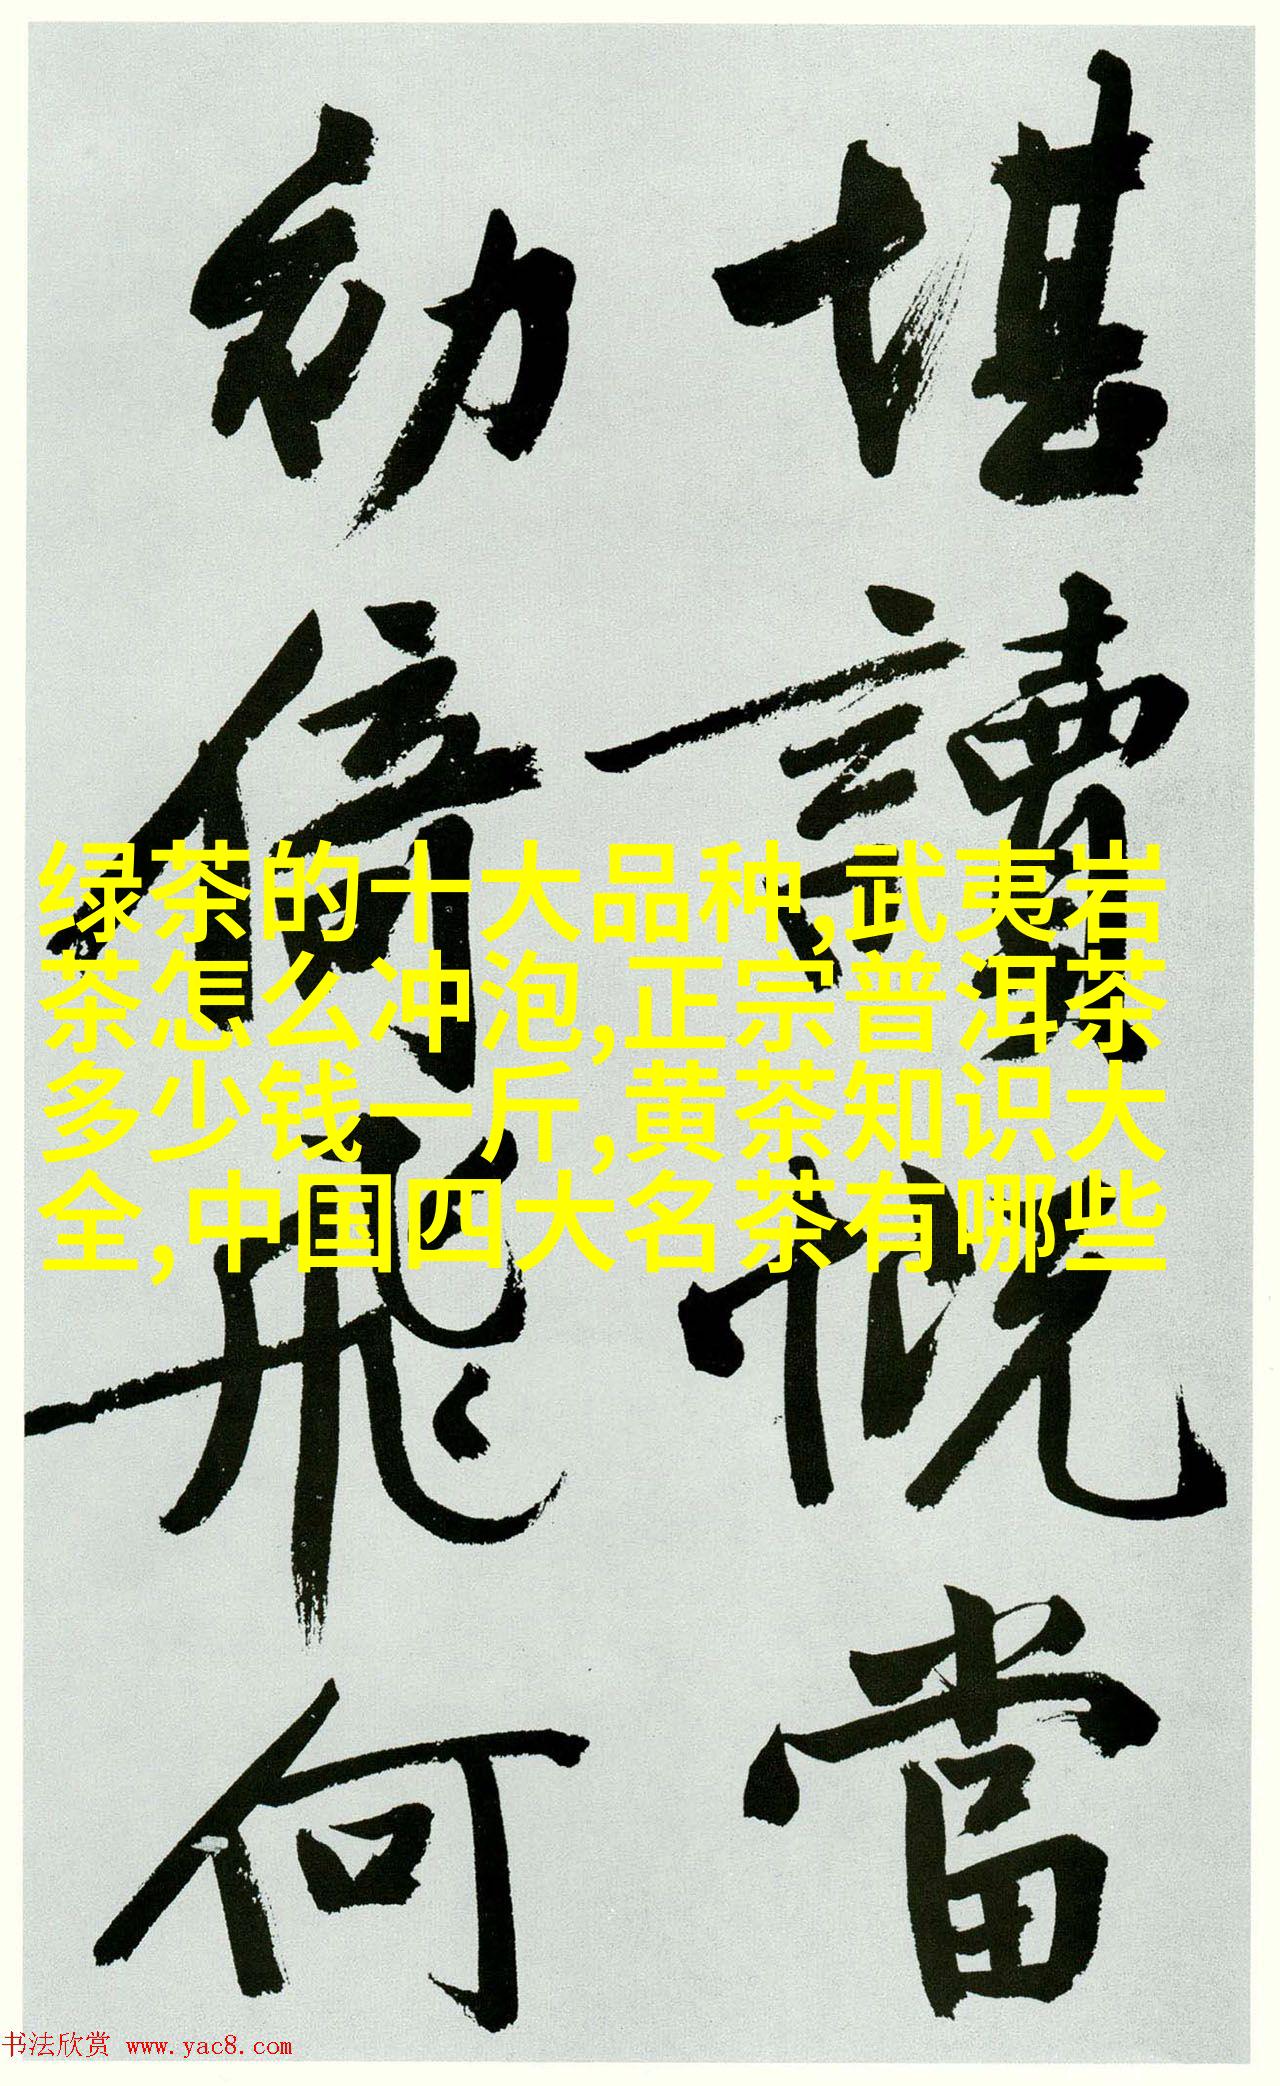 堪讀慨當
飛何
绿茶的十大品种,武夷岩
茶怎么冲泡,正宗普洱茶
多少钱一斤,黄茶知识大
全,中国四大名茶有哪些
书法欣赏 www.yac8.com